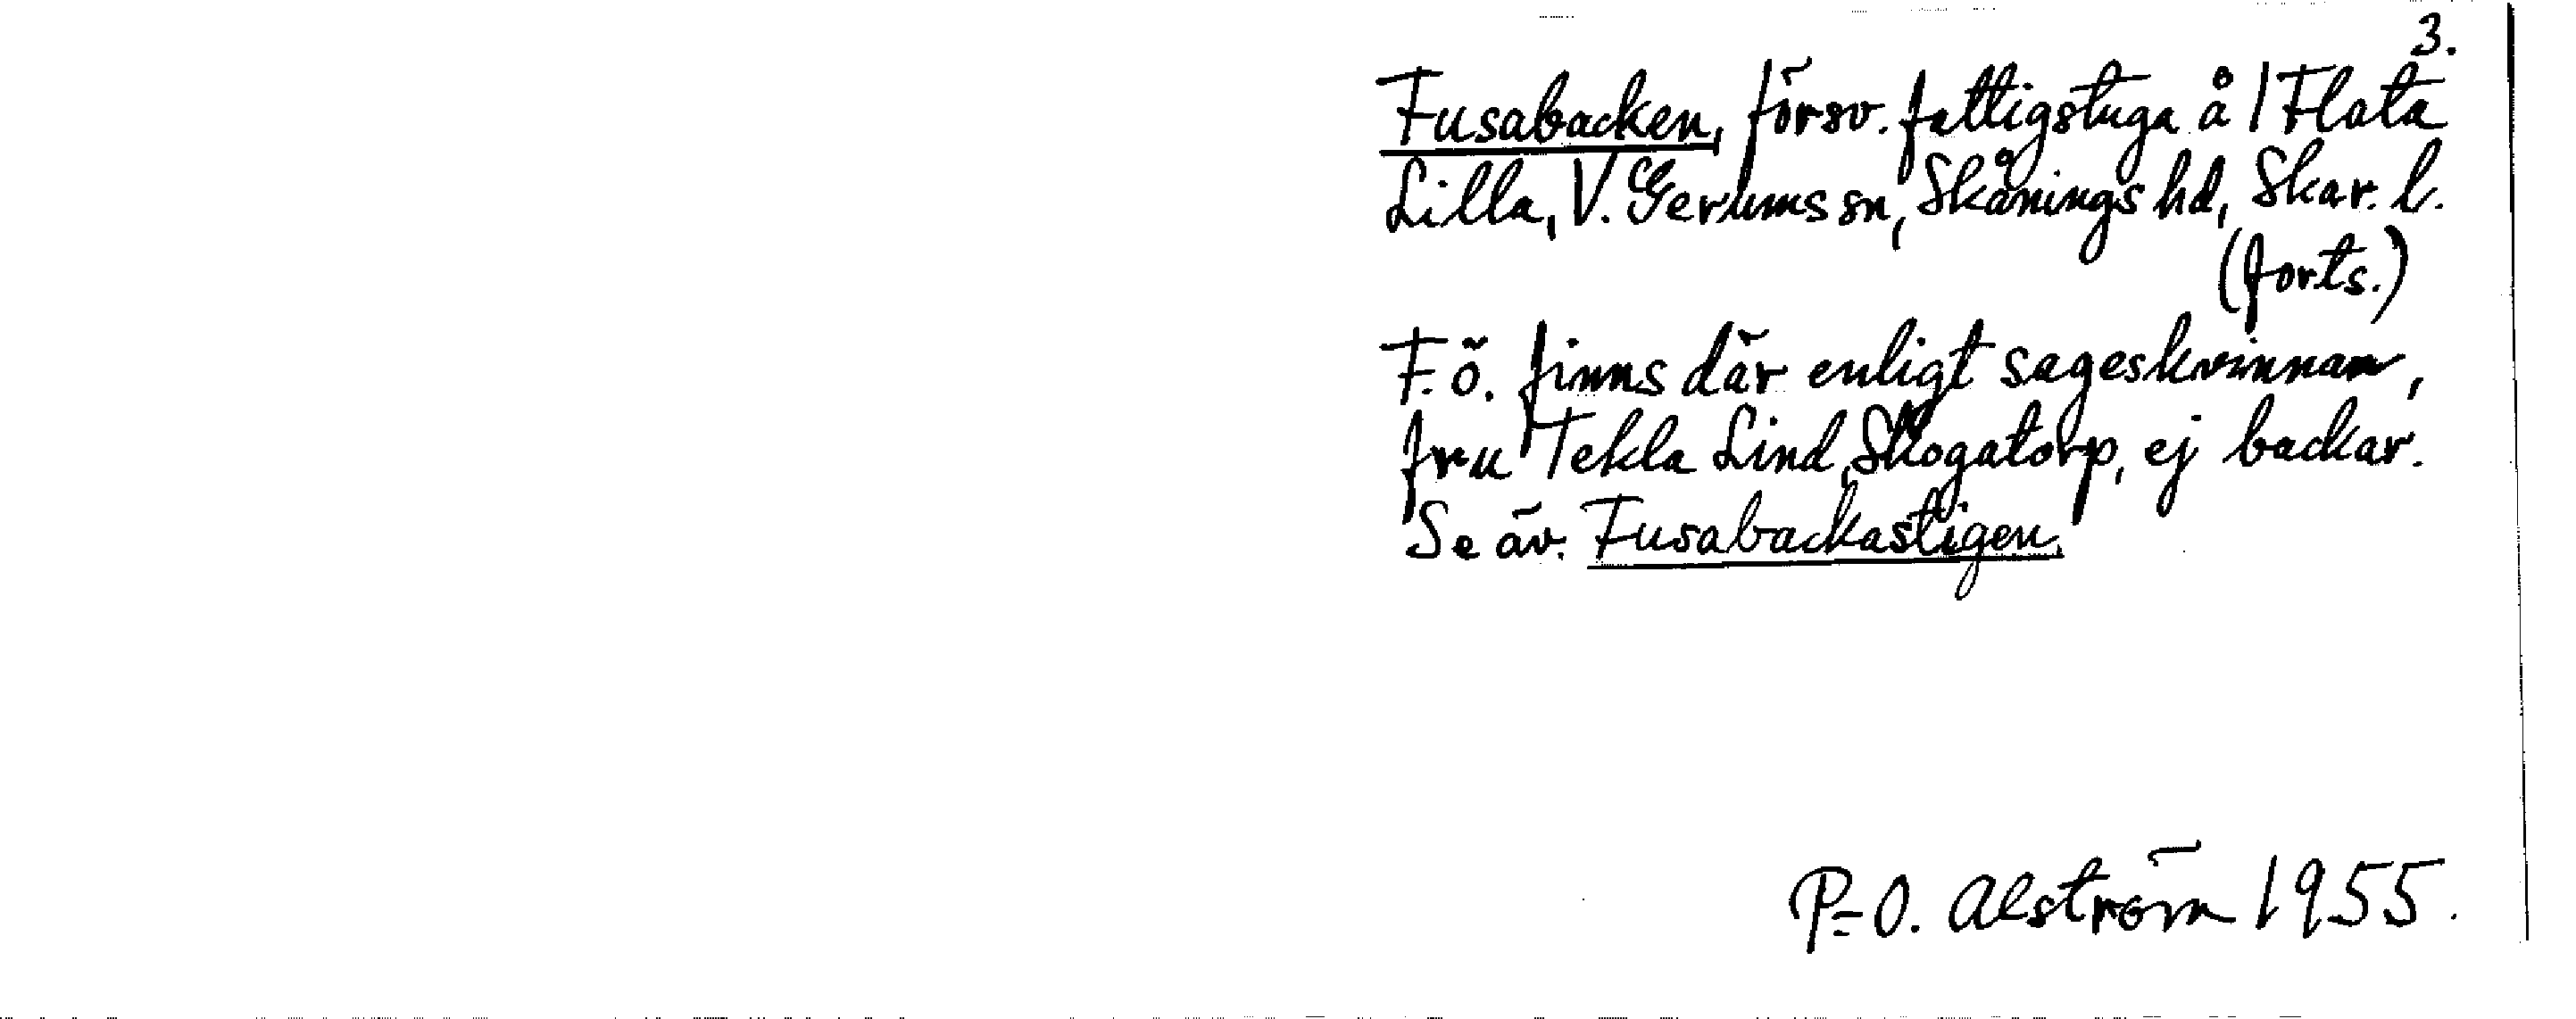 3.
Fusabacken, försv. fattigstuga å 1 Flata
Lilla, V. Gerums sn, Skånings hd, Skar. l.
(forts.)
F. ö. finns där enligt sageskvinnan,
fru Tekla Lind, Skogatorp, ej backar.
Se äv. Fusabackastigen.
P-O. Alström 1955.